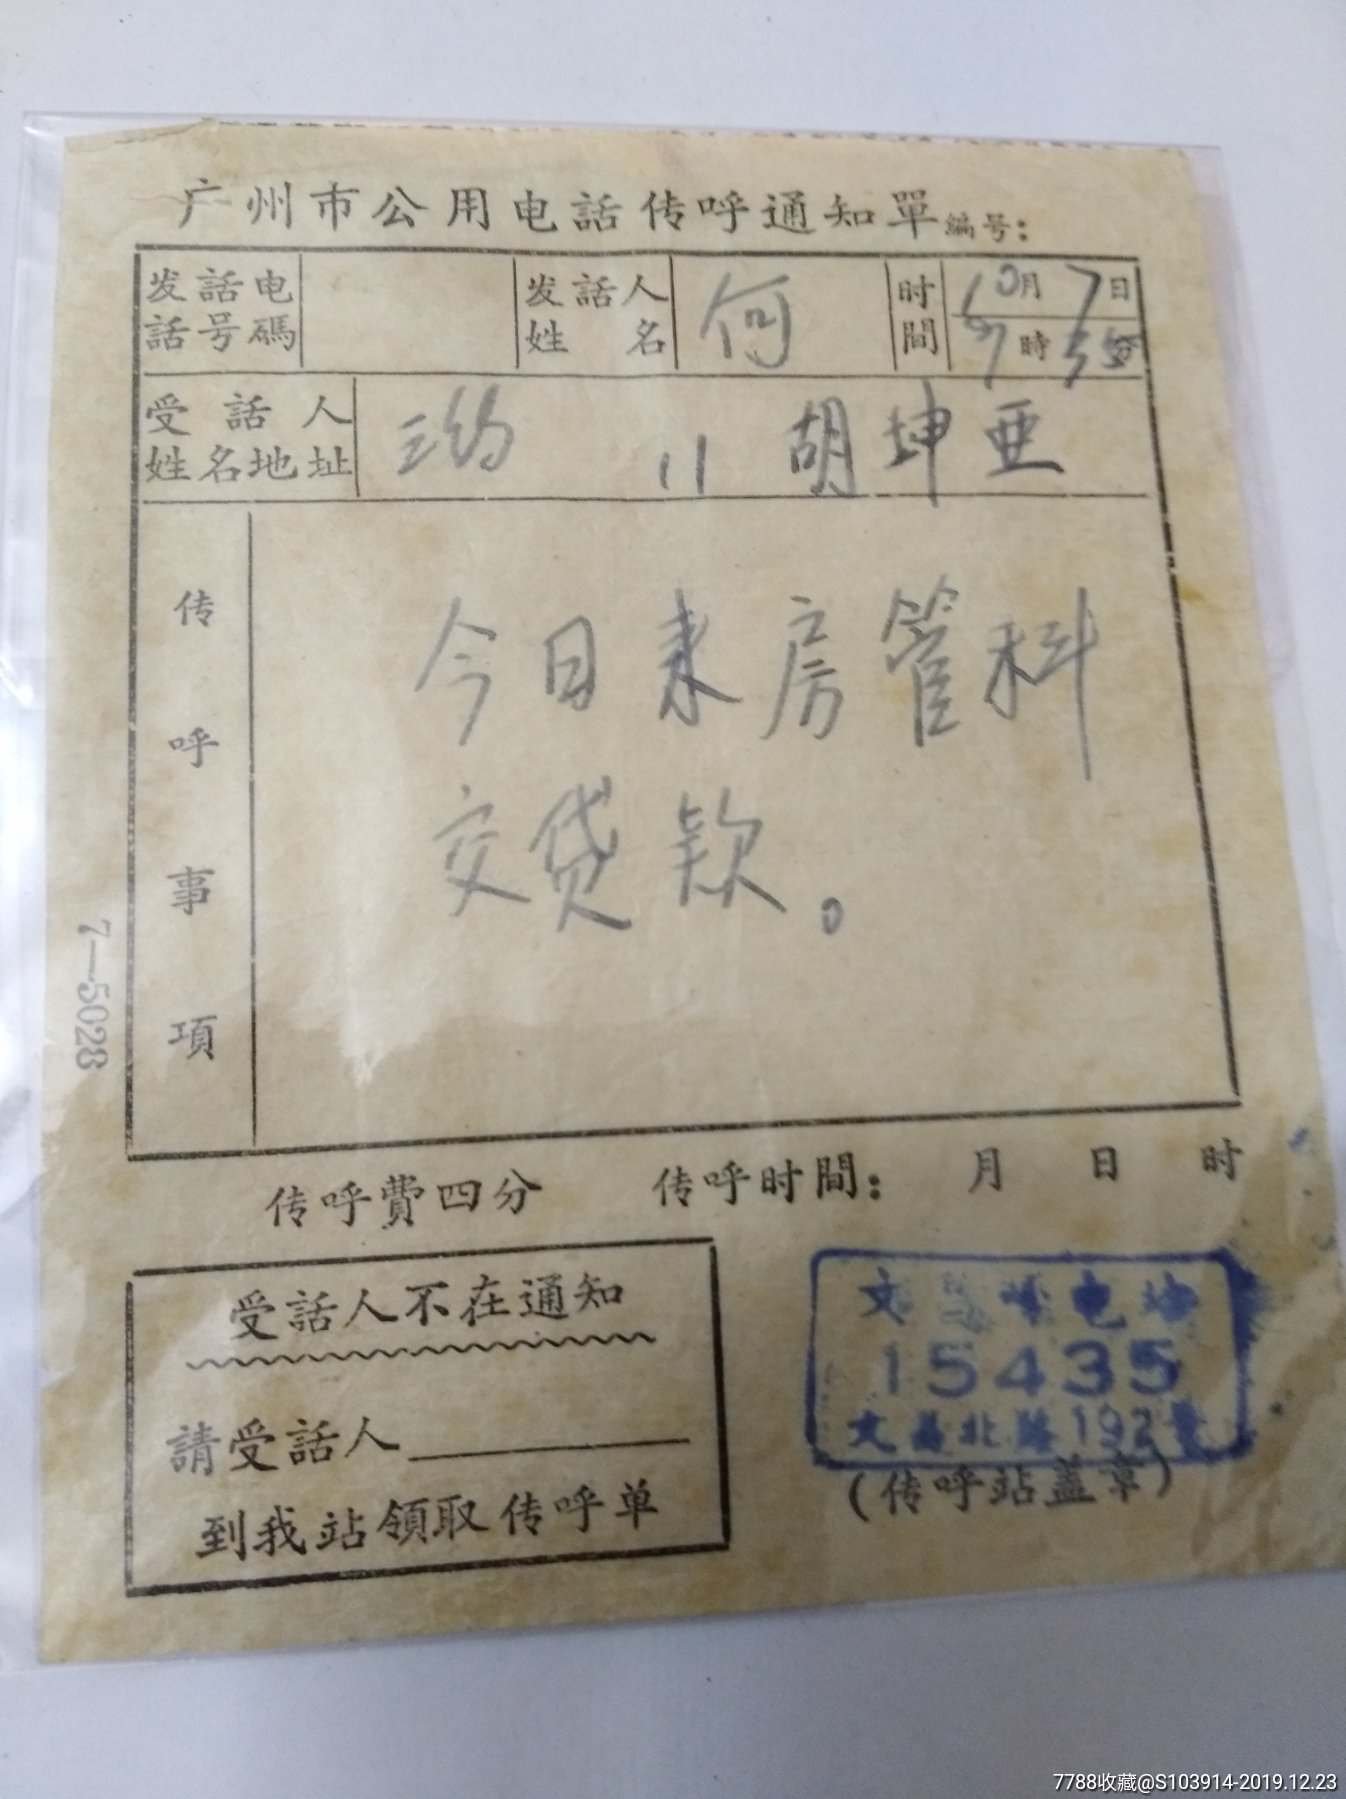 广州市公用电話传呼通知單 編号:
发話电
話号碼
发話人
姓 名
何
时
間
10月 7日
9時 55分
受 話 人
姓名地址
11 胡坤亚
传
呼
事
項
今日来房管科
交贷款。
7—5028
传呼費四分 传呼时間: 月 日 时
受話人不在通知
請受話人
到我站領取传呼单
文 电
15435
文昌北路192号
(传呼站盖章)
7788收藏@S103914-2019.12.23